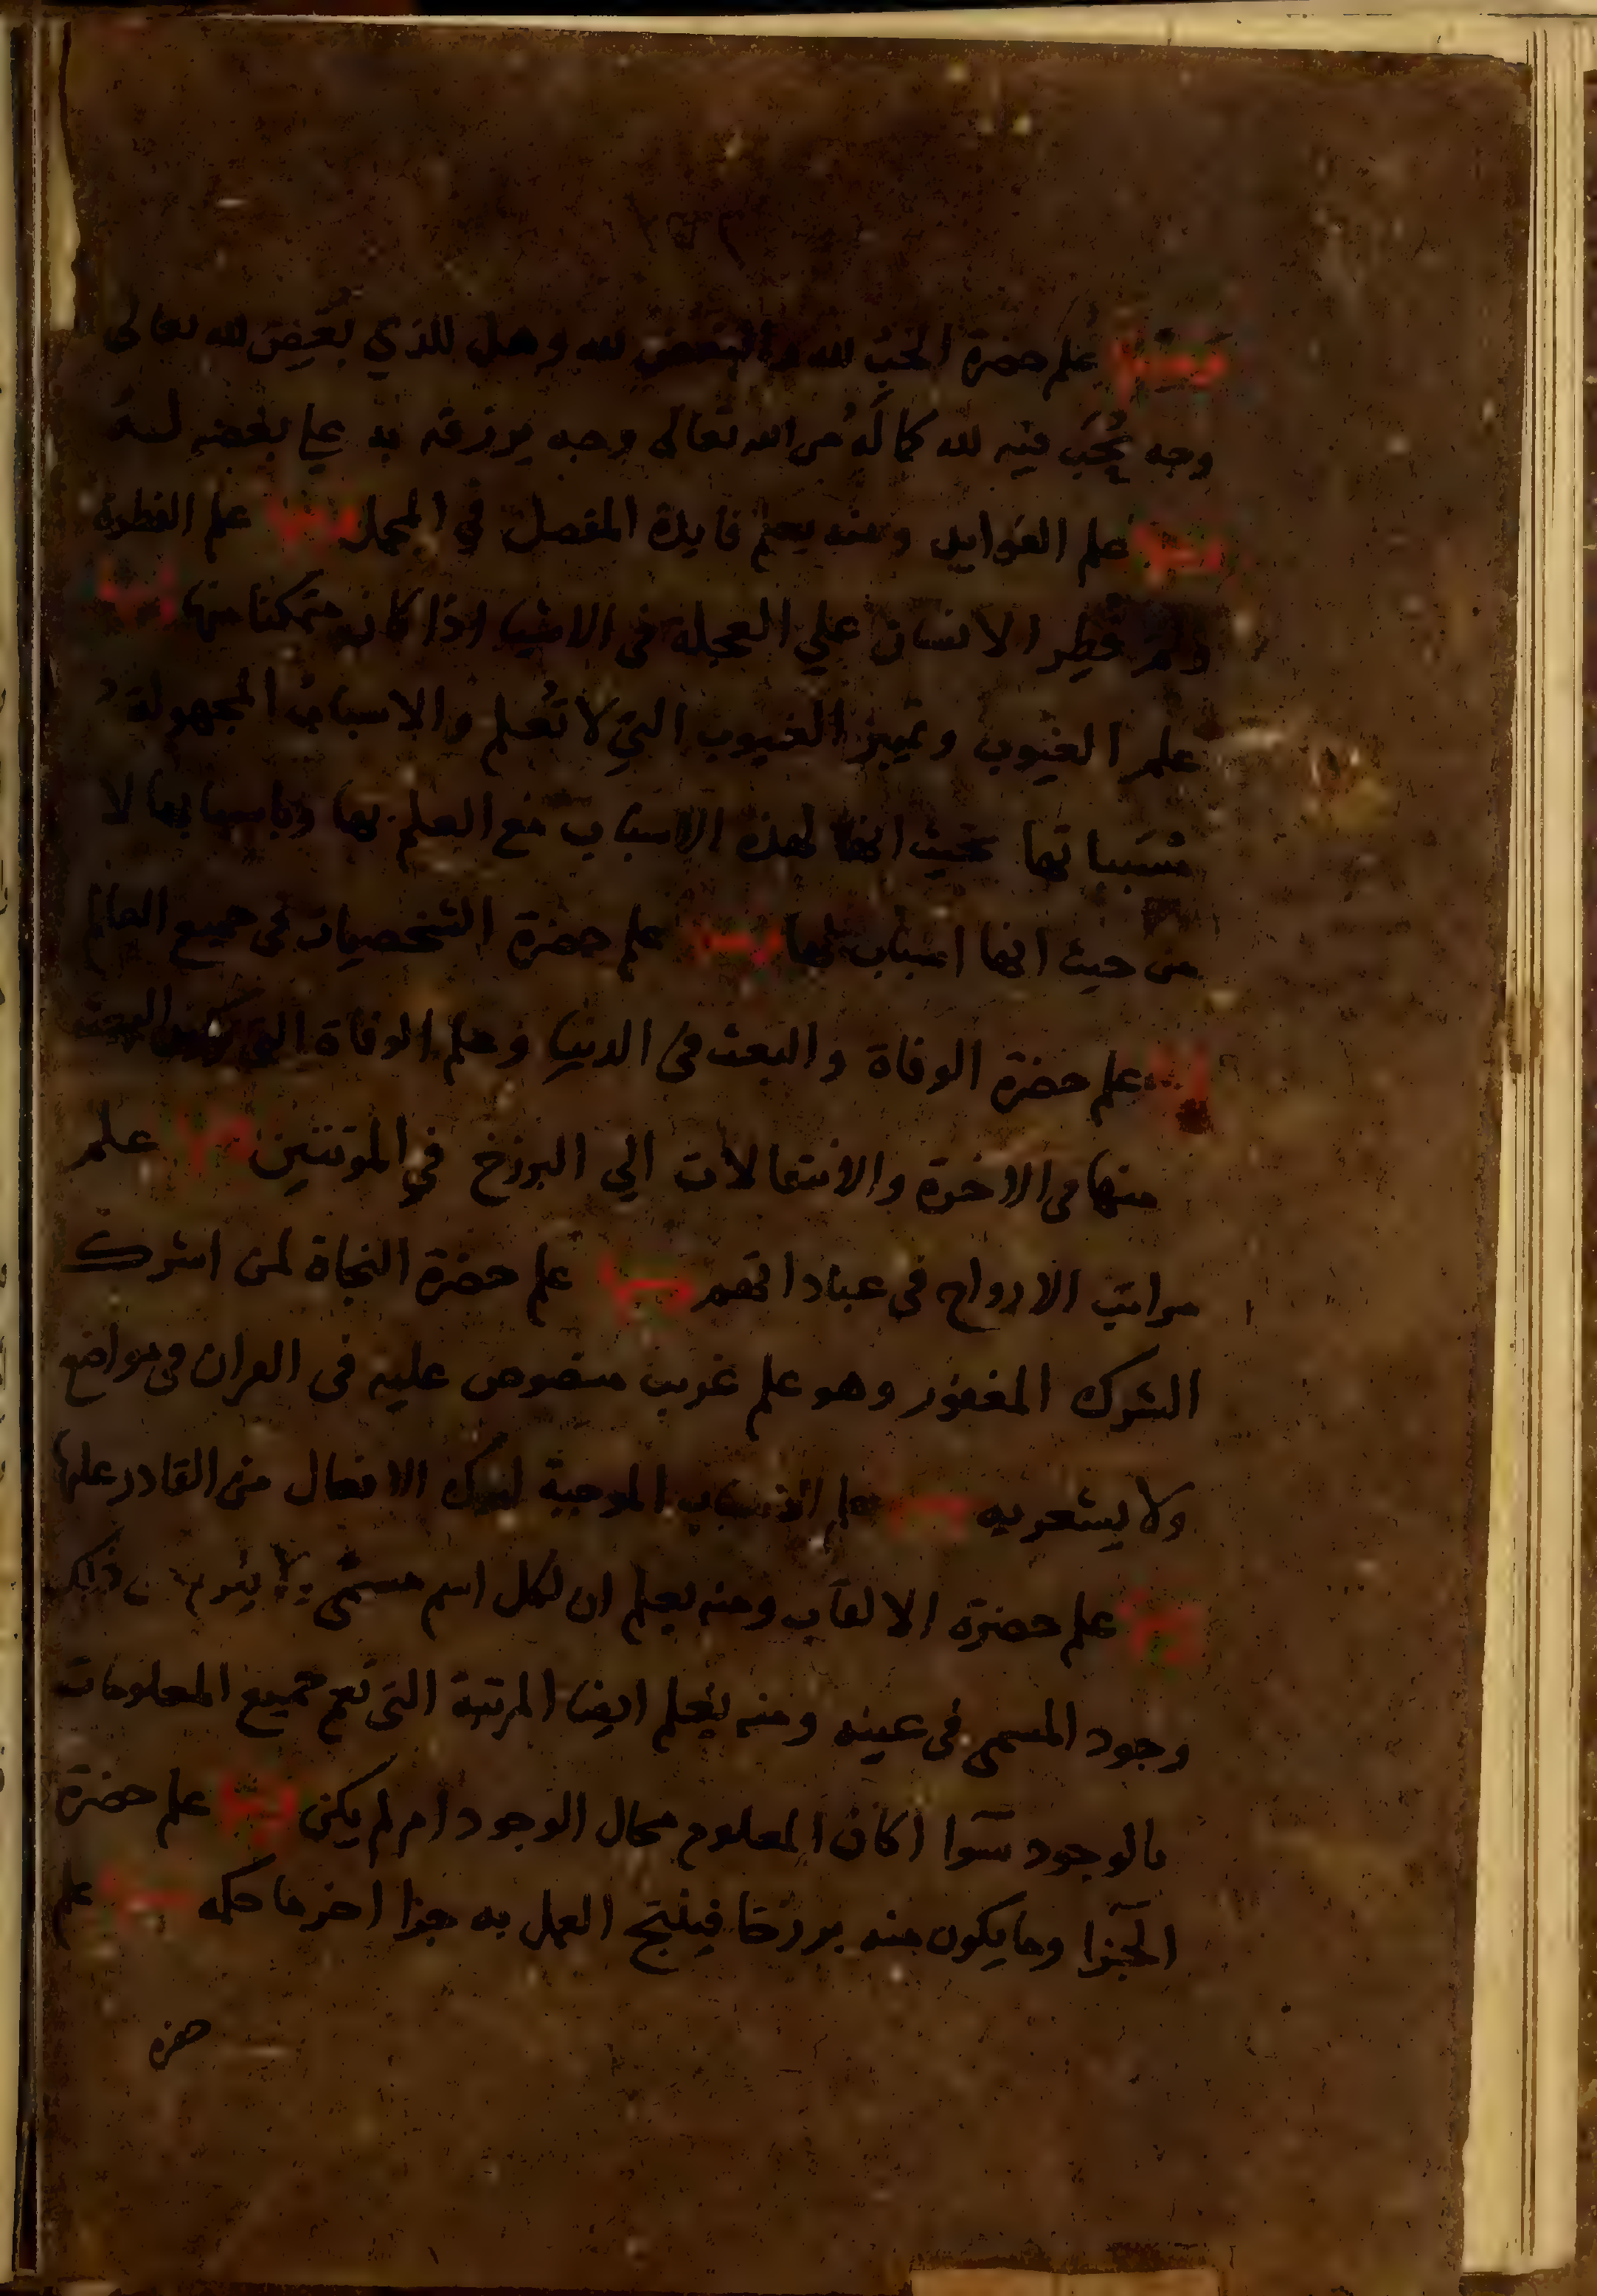 ومنها علم حضرة الحب لله والبغض لله وهل للذي بغض لله تعالى
وجه يُحَب فيه لله كما لَهُ من الله تعالى وجه يرزقه به علي بغضه لهُ
ومنها علم الفوايد ومنه يعلم فايدة المفصل في المجمل ومنها علم الفطرة
ولم فُطِر الانسان علي العجلة في الاشيا اذا كان متمكنا منها ومنها
علم الغيوب وتمييز الغيوب التي لا تُعلم والاسباب المجهولة
مُسَبباتها بحيث انها لهذه الاسباب مع العلم بها وباسبابها لا
من حيث انها اسباب لها ومنها علم حضرة الشخصيات في جميع العالم
ومنها علم حضرة الوفاة والبعث في الدنيا وعلم الوفاة التي يكون البعث
منها في الاخرة والانتقالات الي البرزخ في الموتتين ومنها علم
مراتب الارواح في عباداتهم ومنها علم حضرة النجاة لمن اشرك
الشرك المغفور وهو علم غريب منصوص عليه في القران في مواضع
ولا يشعر به ومنها علم الاسباب الموجبة لترك الافعال من القادر عليها
ومنها علم حضرة الالقاب ومنه يعلم ان لكل اسم مسمّي ولا يلزم من ذلك
وجود المسمي في عينه ومنه يُعلم ايضا المرتبة التي تعم جميع المعلومات
بالوجود سوا اكان المعلوم محال الوجود ام لم يكن ومنها علم حضرة
الجزا وما يكون منه برزخا فينتج العمل به جزا اخر ما حكمه ومنها علم
حضرة